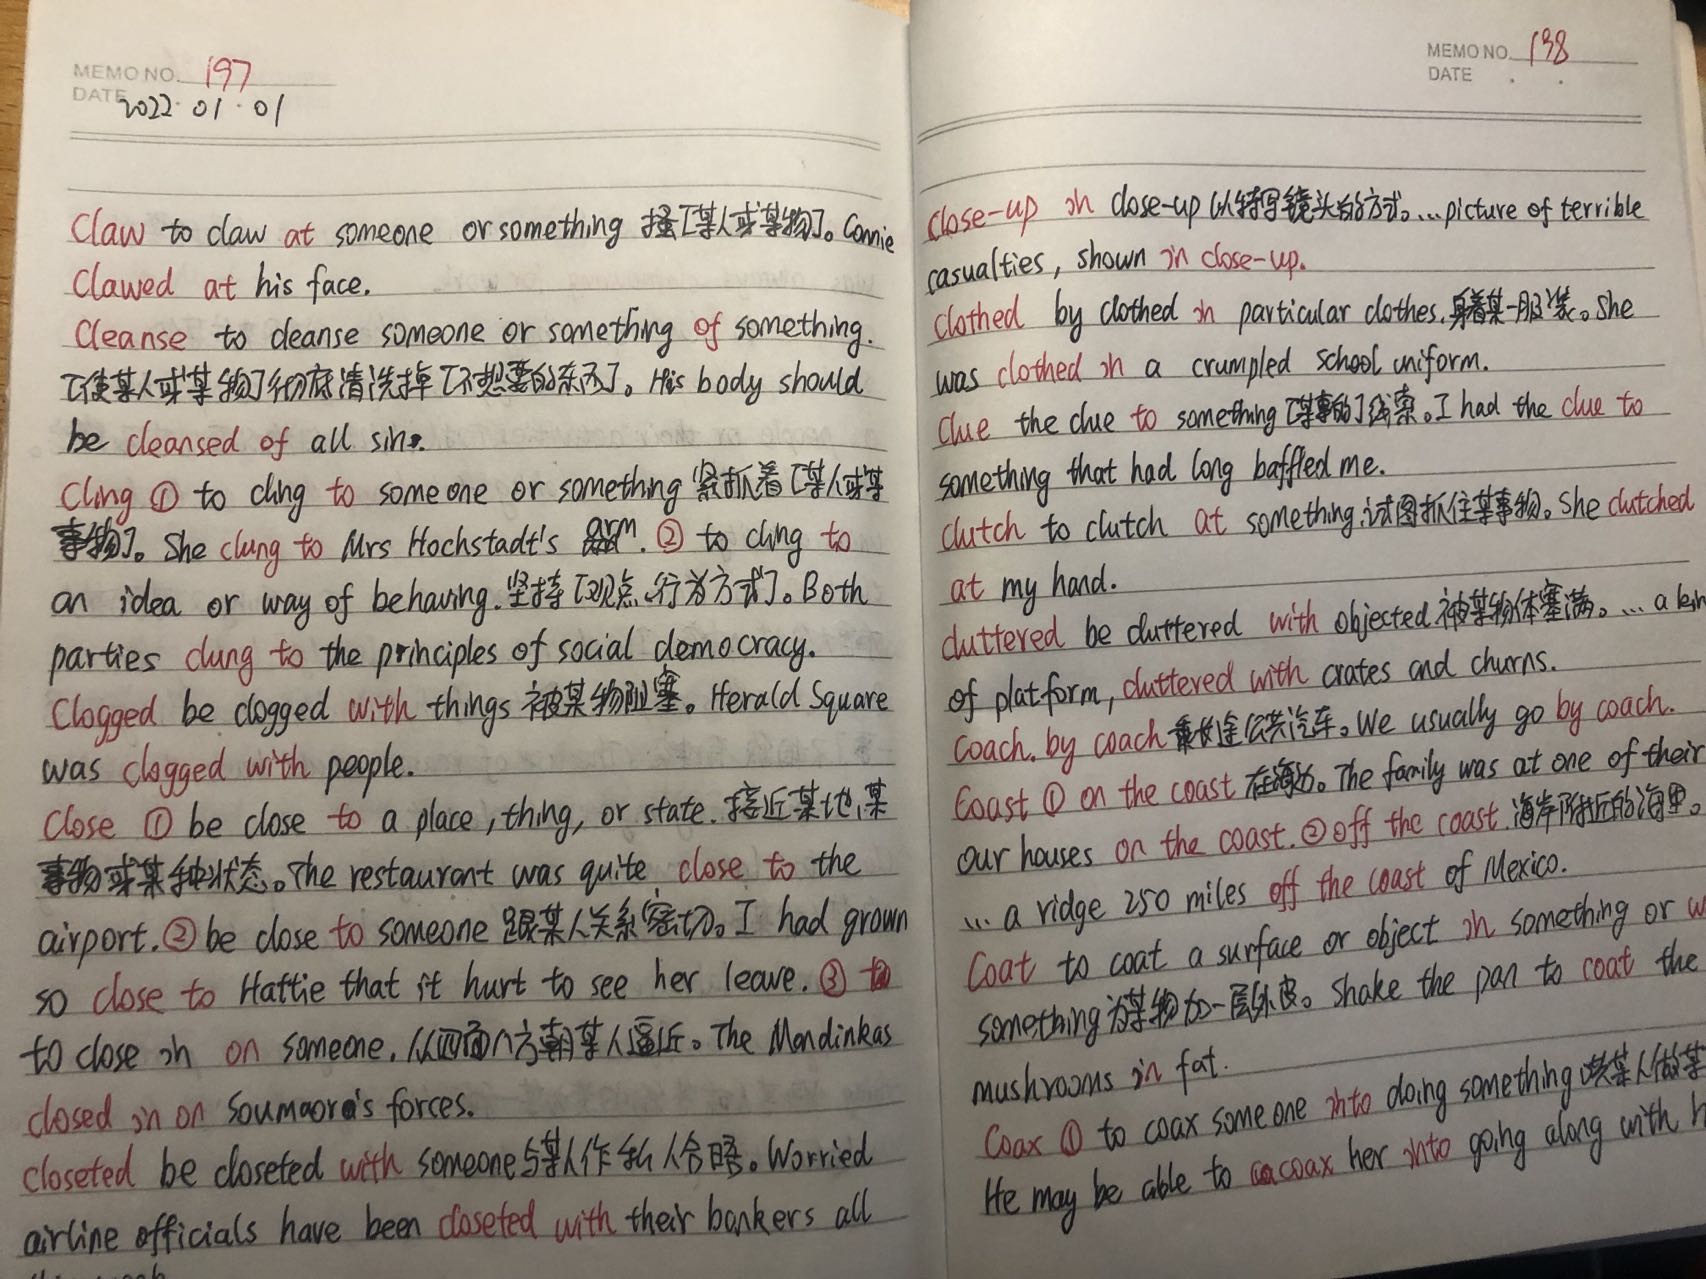 MEMO NO. 197
DATE 2022.01.01
Claw to claw at someone or something 搔[某人或某物]。Connie
Clawed at his face.
Cleanse to cleanse someone or something of something.
[使某人或某物]彻底清洗掉[不想要的东西]。His body should
be cleansed of all sins.
Cling ① to cling to someone or something 紧抓着[某人或某
事物]。She clung to Mrs Hochstadt's arm. ② to cling to
an idea or way of behaving. 坚持[观点、行为方式]。Both
parties clung to the principles of social democracy.
Clogged be clogged with things 被某物阻塞。Herald Square
was clogged with people.
Close ① be close to a place, thing, or state. 接近某地、某
事物或某种状态。The restaurant was quite close to the
airport. ② be close to someone 跟某人关系密切。I had grown
so close to Hattie that it hurt to see her leave. ③
to close in on someone. 从四面八方朝某人逼近。The Mandinkas
closed in on Soumaora's forces.
closeted be closeted with someone 与某人作私人会晤。Worried
airline officials have been closeted with their bankers all
MEMO NO. 198
DATE . .
close-up in close-up 以特写镜头的方式。...picture of terrible
casualties, shown in close-up.
clothed by clothed in particular clothes. 身着某一服装。She
was clothed in a crumpled school uniform.
Clue the clue to something [某事的]线索。I had the clue to
something that had long baffled me.
clutch to clutch at something. 试图抓住某事物。She clutched
at my hand.
cluttered be cluttered with objected 被某物体塞满。... a kin
of platform, cluttered with crates and churns.
Coach. by coach 乘长途公共汽车。We usually go by coach.
Coast ① on the coast 在海边。The family was at one of their
our houses on the coast. ② off the coast. 海岸附近的海里。
... a ridge 250 miles off the coast of Mexico.
Coat to coat a surface or object in something or w
something 为某物加一层外皮。Shake the pan to coat the
mushrooms in fat.
Coax ① to coax someone into doing something 哄某人做某
He may be able to coax her into going along with h